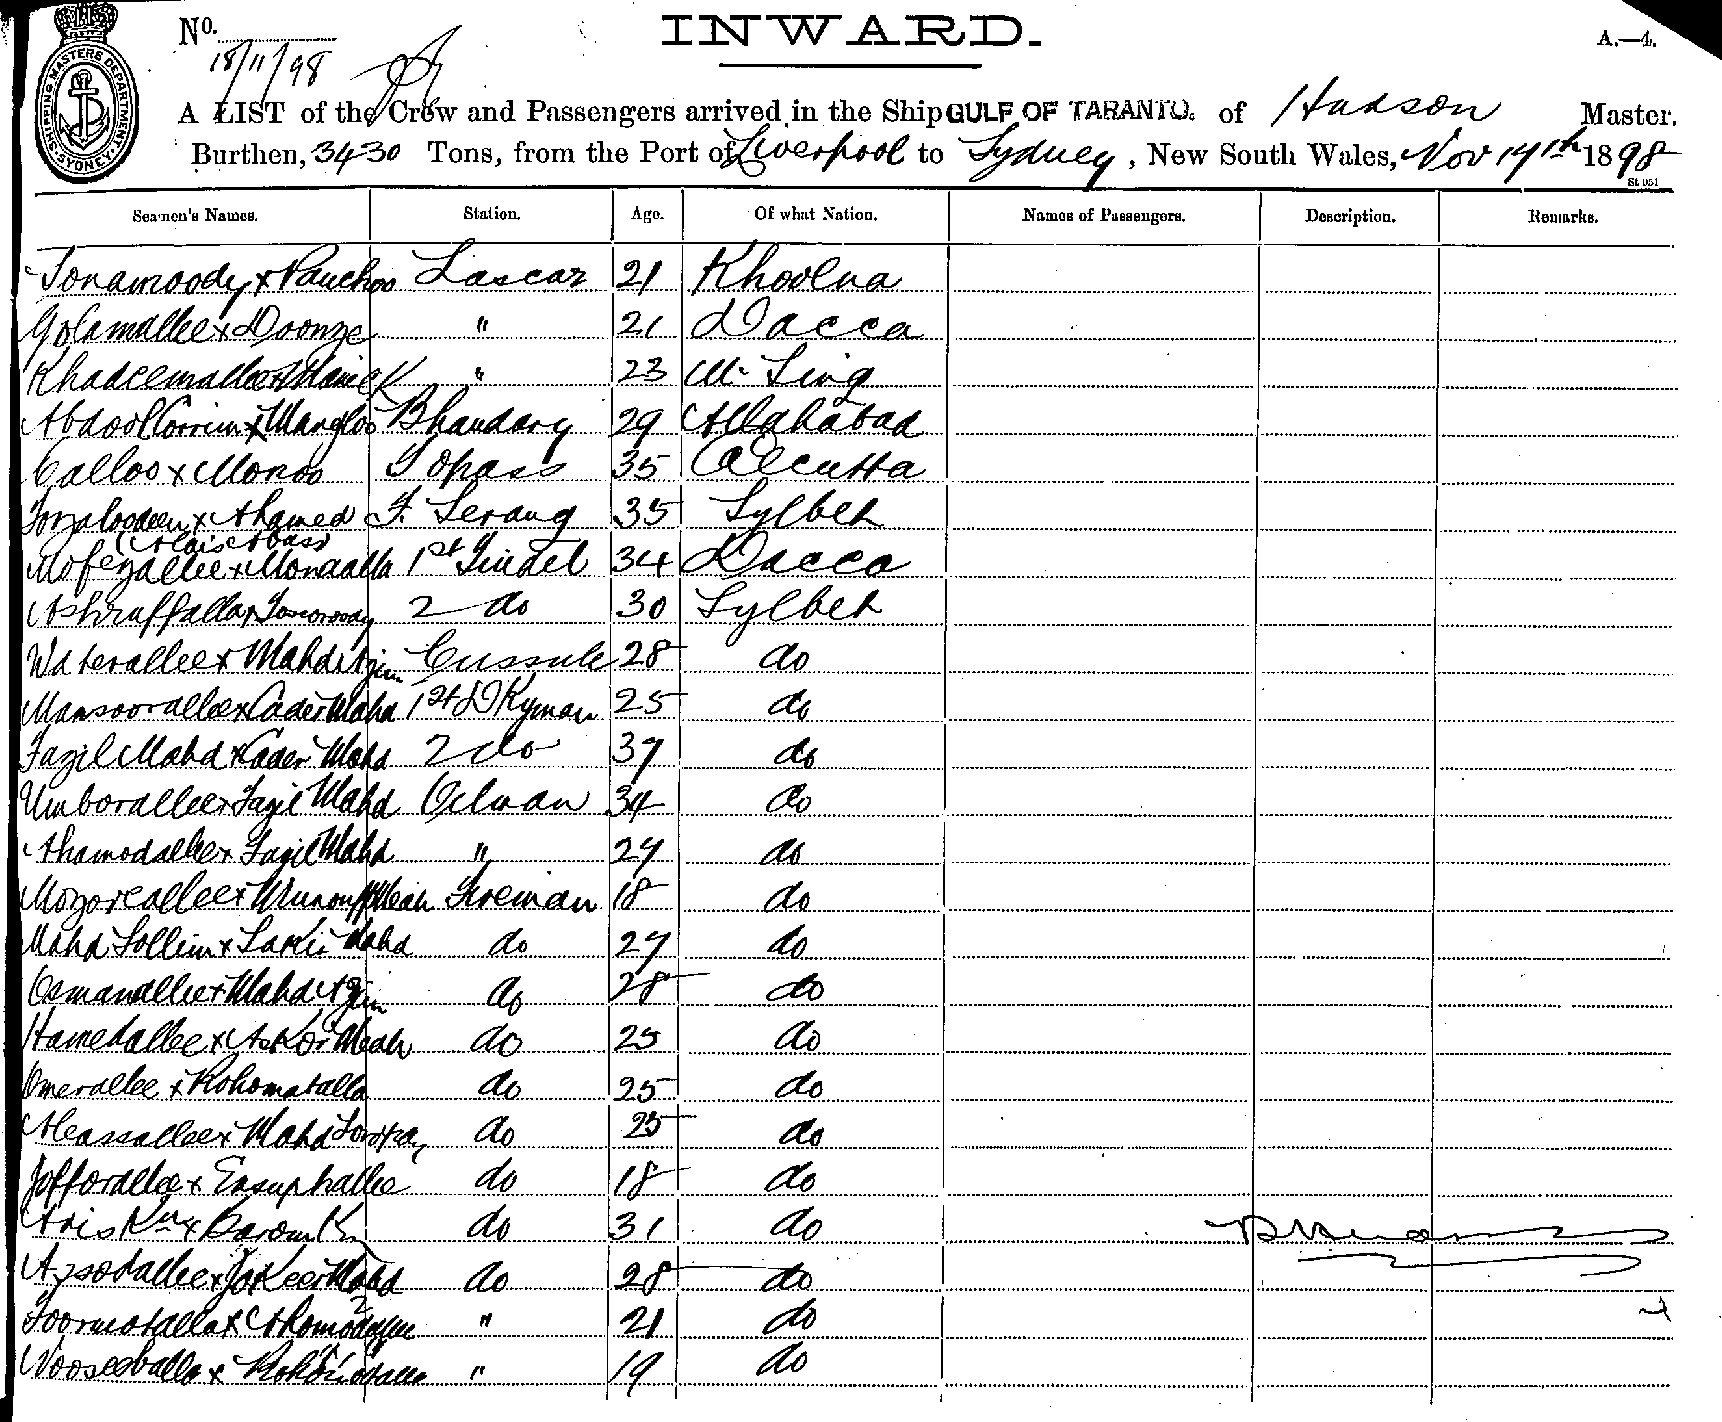 No.
18/11/98
INWARD.
A.—4.
SHIPPING MASTERS DEPARTMENT SYDNEY
A LIST of the Crew and Passengers arrived in the Ship GULF OF TARANTO. of Hudson Master.
Burthen, 3430 Tons, from the Port of Liverpool to Sydney, New South Wales, Nov 14th 1898
St 051
Seamen's Names. Station. Age. Of what Nation. Names of Passengers. Description. Remarks.
Tonamoody x Panchoo Lascar 21 Khoolna
Golamallee x Doonze " 21 Dacca
Khadeemallee x Manick " 23 M. Sing
Abdool Corrim x Mangloo Bhandary 29 Allahabad
Calloo x Monoo Topass 35 Calcutta
Ahamed F. Serang 35 Sylhet
Mofezallee x 1st Tindel 34 Dacca
Ashruffalla x 2 do 30 Sylhet
Waterallee x Mahd Azim Cussub 28 do
Mansoorallee x Cader Mahd 1st DKyman 25 do
Fazil Mahd x Cader Mahd 2 do 37 do
Umborallee x Fazil Mahd Oilman 34 do
Ahamodallee x Fazil Mahd " 27 do
Mozoreallee x Munouff Meah Fireman 18 do
Mahd Sollim x Mahd do 27 do
Osmanallee x Mahd Azim do 28 do
Hamedallee x Askor Meah do 25 do
Omerallee x Rohomatalla do 25 do
Aleassallee x Mahd do 25 do
Joffordllee x Easuphallee do 18 do
Aris Kn x Barom Kn do 31 do
Mahd do 28 do
Toormotalla x " 21 do
x " 19 do